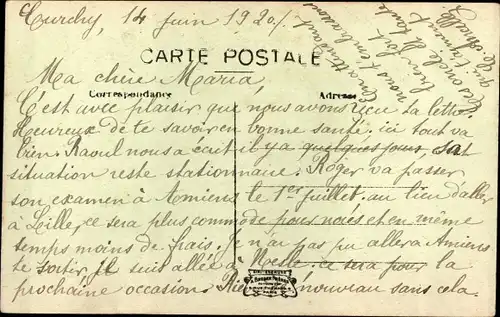 Curchy, 14 juin 1920.
CARTE POSTALE
Ma chère Maria,
Correspondance
Adresse
C'est avec plaisir que nous avons reçu ta lettre
Heureux de te savoir en bonne santé, ici tout va
bien. Raoul nous a écrit il y a quelques jours, sa
situation reste stationnaire. Roger va passer
son examen à Amiens le 1er juillet. au lieu d'aller
à Lille, ce sera plus commode pour nous et en même
temps moins de frais. je n'ai pas pu aller à Amiens
le suis allée à Nesle, ce sera pour la
prochaine occasion. Rien nouveau sans cela.
En attendant
nous t'embrassons
bien fort
tout le monde
qui t'aiment
PARIS